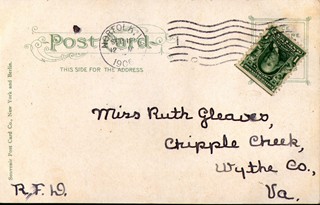 Post Card
NORFOLK, VA.
THIS SIDE FOR THE ADDRESS.
Miss Ruth Gleaves,
Cripple Creek,
Wythe Co.,
Va.
R.F.D.
Souvenir Post Card Co., New York and Berlin.